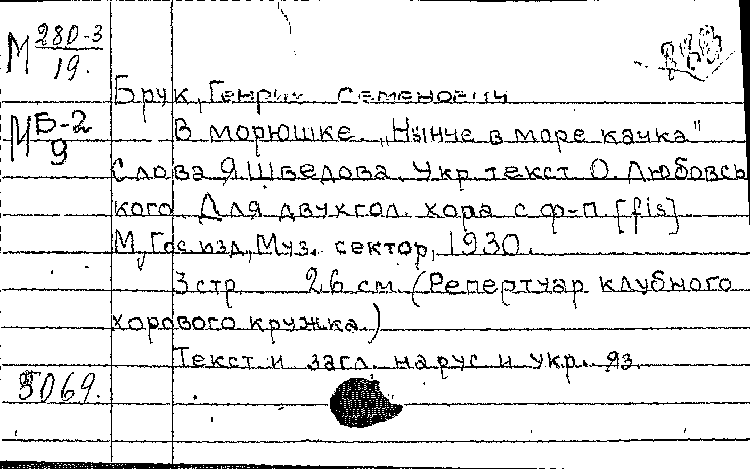 М 280-3
19.
Брук, Генрих Семенович
М Б-2
9
В морюшке. „Нынче в море качка"
Слова Я.Шведова. Укр. текст О. Любовсь
кого Для двухгол. хора с ф-п [fis]
М, Гос изд, Муз. сектор, 1930.
3 стр 26 см. (Репертуар клубного
хорового кружка.)
Текст и загл. на рус и укр. яз.
5069.